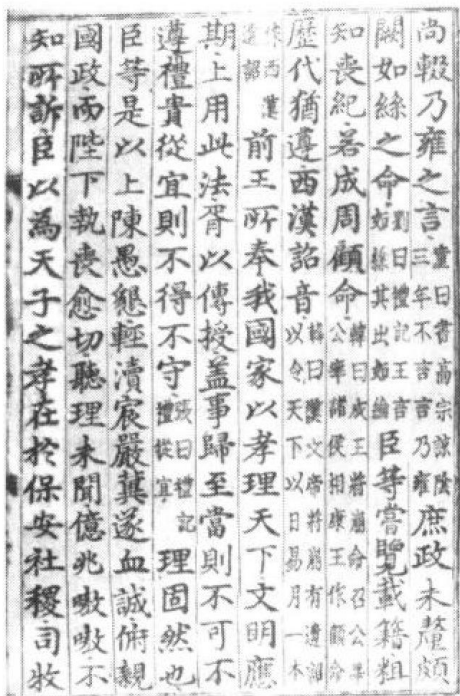 尚輟乃雍之言童曰書高宗諒陰三年不言言乃雍庶政未釐頗
闕如絲之命劉曰禮記王言如絲其出如綸臣等嘗覽載籍粗
知喪紀若成周顧命韓曰成王將崩命召公畢公率諸侯相康王作顧命
歷代猶遵西漢詔音韓曰漢文帝將崩有遺詔以令天下以日易月一本
作西漢遺詔前王所奉我國家以孝理天下文明應
期上用此法胥以傳授盖事歸至當則不可不
遵禮貴從宜則不得不守張曰禮記禮從宜理固然也
臣等是以上陳愚懇輕瀆宸嚴冀遂血誠俯親
國政而陛下執喪愈切聽理未聞億兆嗷嗷不
知所訴臣以為天子之孝在於保安社稷司牧